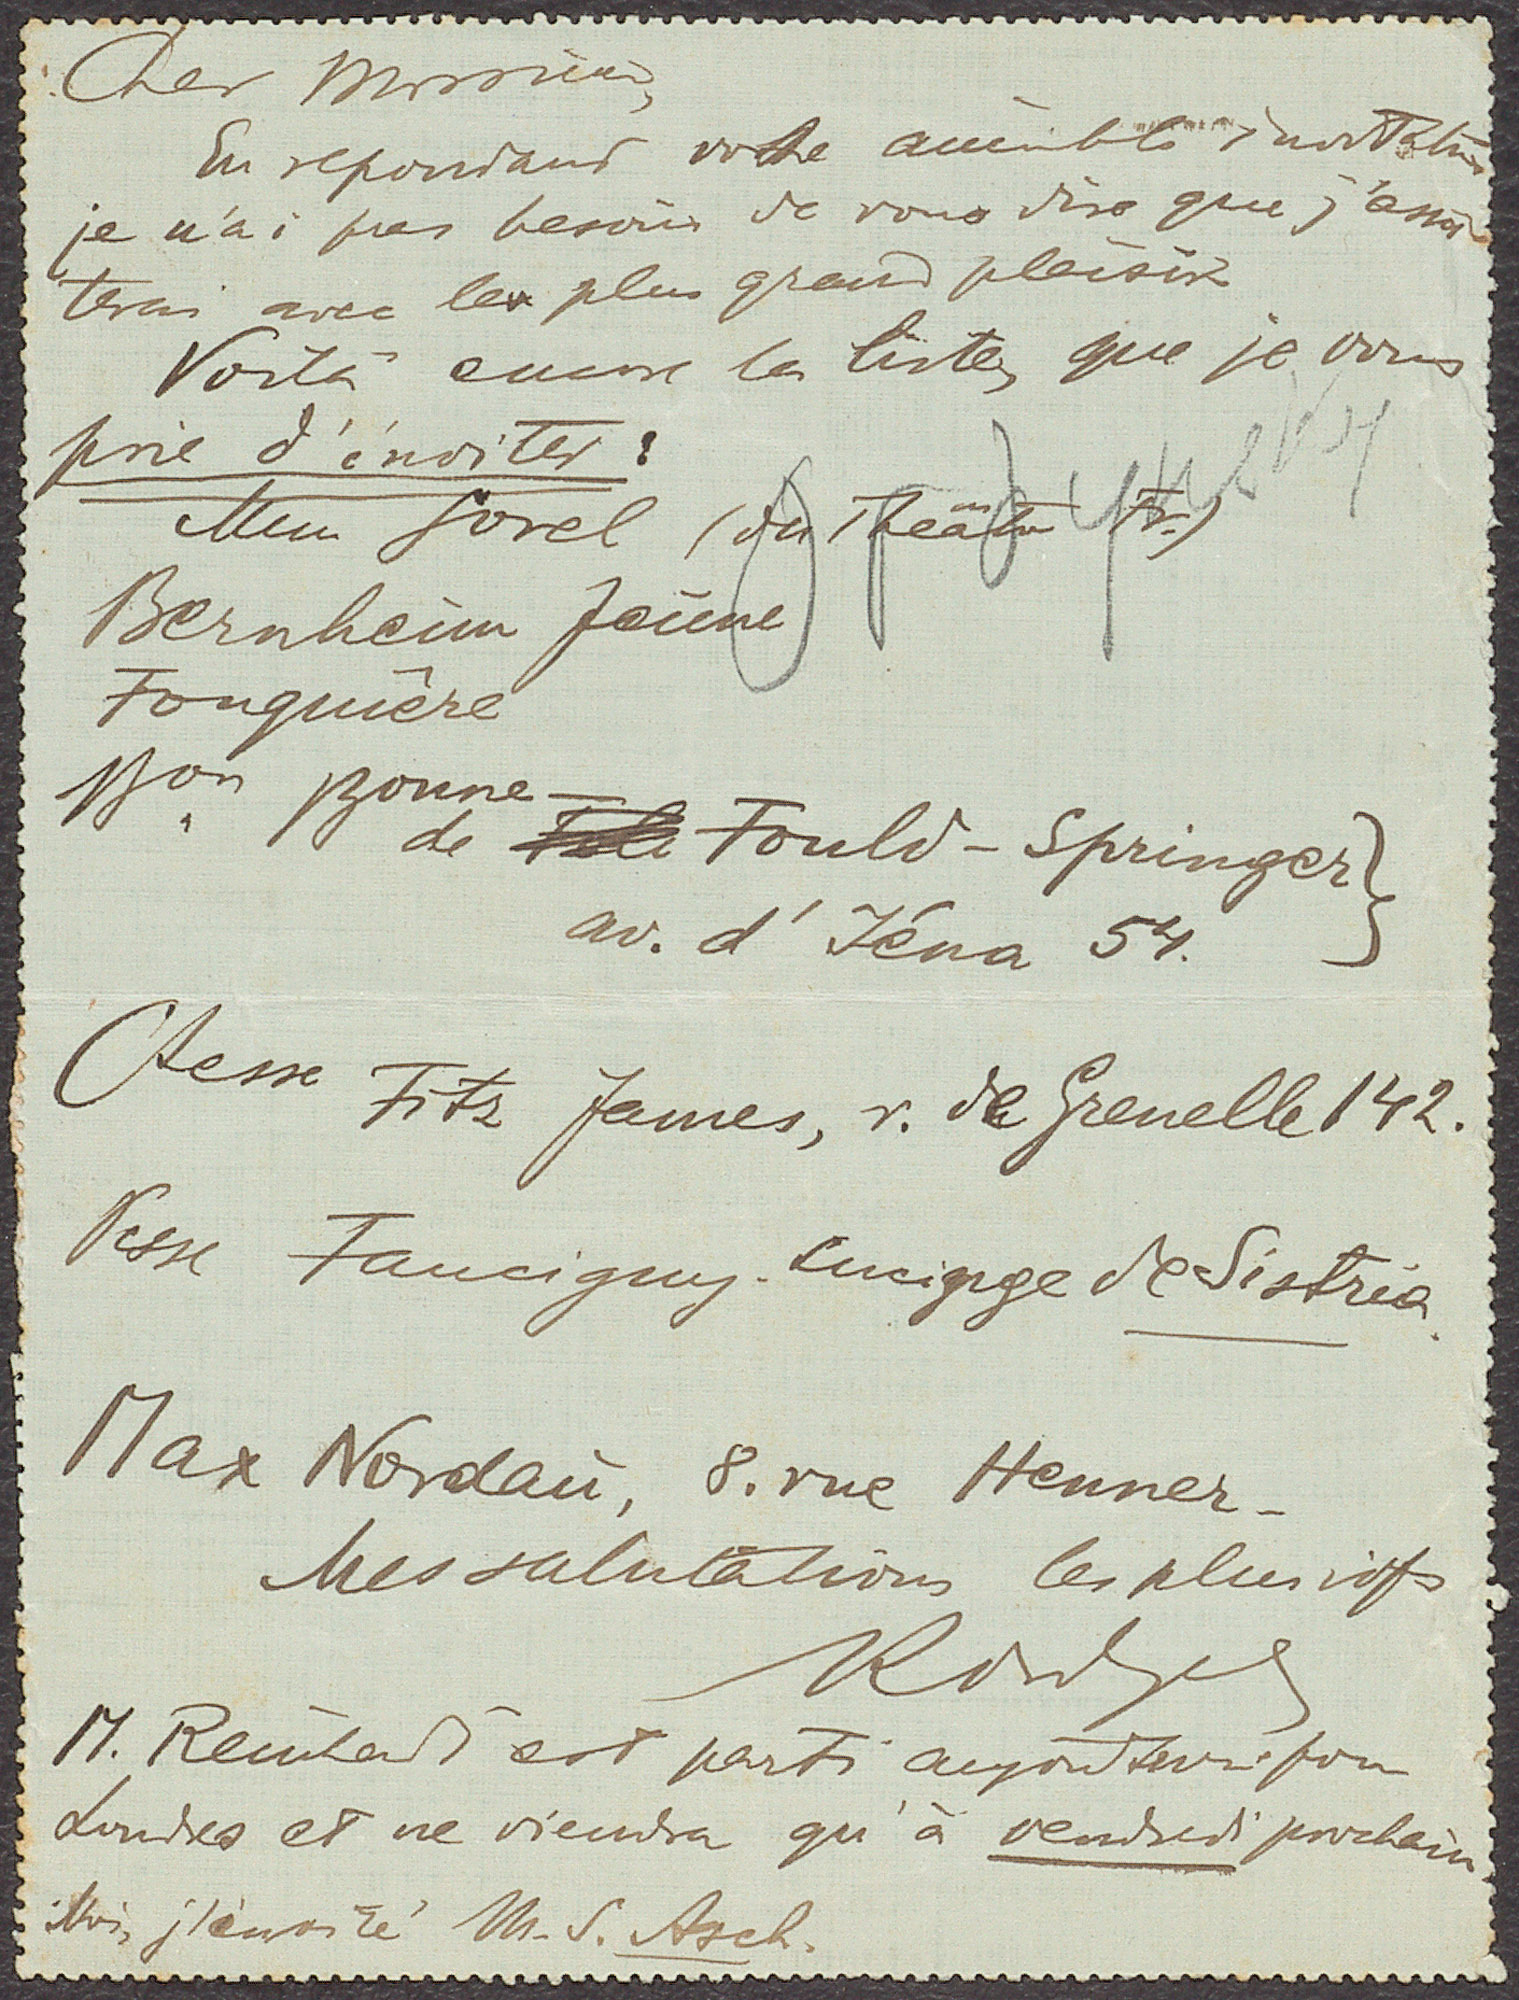 Cher Monsieur,
En repondant votre aimable invitation
je n'ai pas besoin de vous dire que j'assis
terai avec le plus grand plaisir
Voilà encore la liste, que je vous
prie d'inviter :
Mme Sorel (du Theâtre Fr.)
Bernheim Jeune
Fouquière
Bon Bonne
de Fould-Springer
av. d'Iéna 54.
Ctesse Fitz James, r. de Grenelle 142.
Faucigny-Lucinge de Sistria
Max Nordau, 8. rue Henner -
Mes salutations les plus vifs
M. Reinhardt est parti aujourd'hui pour
Londres et ne viendra qu'à vendredi prochain
Moi, j'invité M. S. Asch.